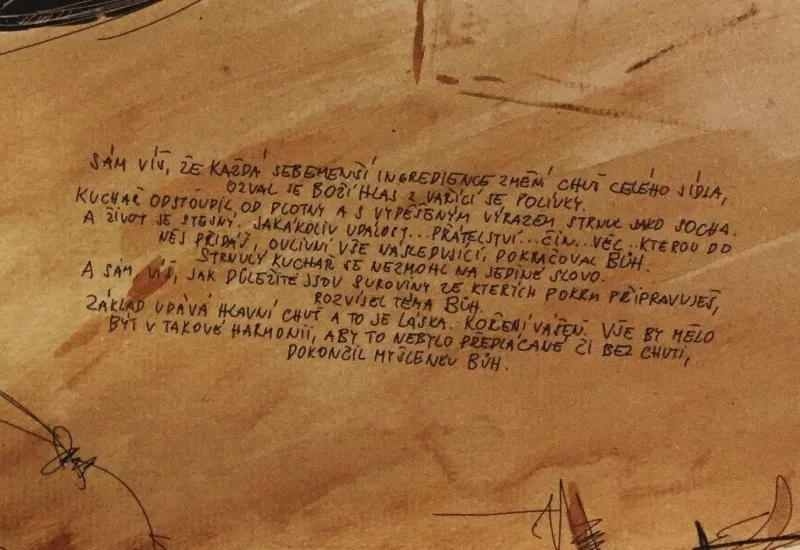 SÁM VÍŠ, ŽE KAŽDÁ SEBEMENŠÍ INGREDIENCE ZMĚNÍ CHUŤ CELÉHO JÍDLA,
OZVAL SE BOŽÍ HLAS Z VAŘÍCÍ SE POLÍVKY.
KUCHAŘ ODSTOUPIL OD PLOTNY A S VYDĚŠENÝM VÝRAZEM STRNUL JAKO SOCHA.
A ŽIVOT JE STEJNÝ. JAKÁKOLIV UDÁLOST... PŘÁTELSTVÍ... ČIN... VĚC.. KTEROU DO
NĚJ PŘIDÁŠ, OVLIVNÍ VŠE NÁSLEDUJÍCÍ, POKRAČOVAL BŮH.
STRNULÝ KUCHAŘ SE NEZMOHL NA JEDINÉ SLOVO.
A SÁM VÍŠ, JAK DŮLEŽITÉ JSOU SUROVINY ZE KTERÝCH POKRM PŘIPRAVUJEŠ,
ROZVÍJEL TÉMA BŮH.
ZÁKLAD UDÁVÁ HLAVNÍ CHUŤ A TO JE LÁSKA. KOŘENÍ VÁŠEŇ. VŠE BY MĚLO
BÝT V TAKOVÉ HARMONII, ABY TO NEBYLO PŘEPLÁCANÉ ČI BEZ CHUTI,
DOKONČIL MYŠLENKU BŮH.